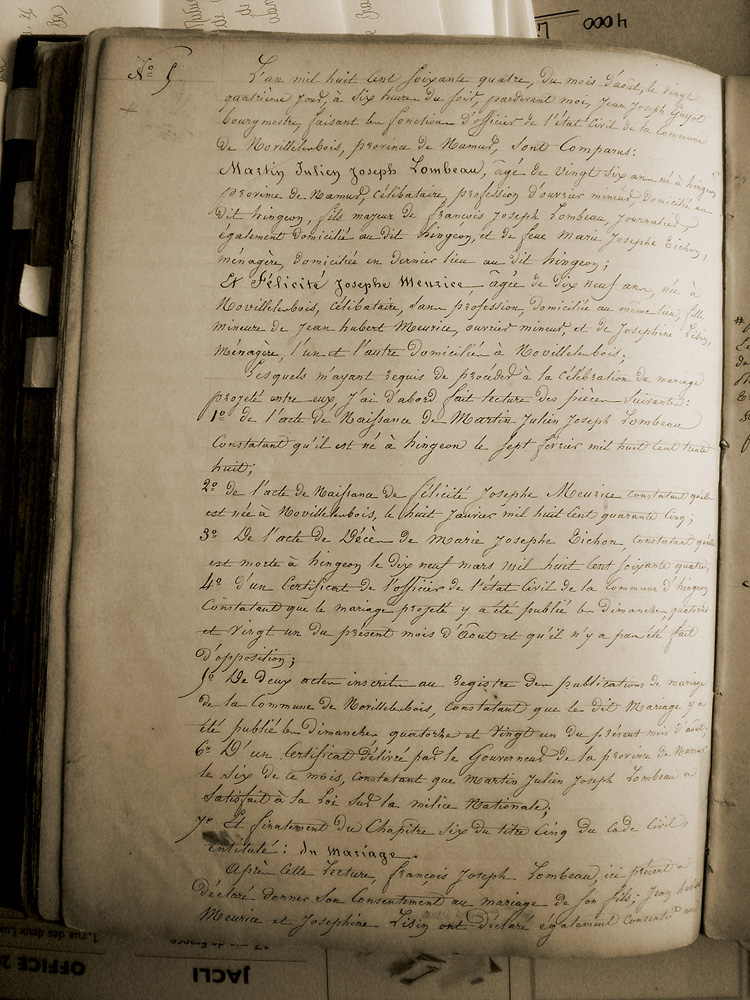 N° 5
L'an mil huit cent soixante quatre, du mois d'août, le vingt
quatrième jour, à six heures du soir, pardevant moi, Jean Joseph Guyot
bourgmestre, faisant les fonctions d'officier de l'état Civil de la Commune
de Novillelesbois, province de Namur, sont Comparus:
Martin Julien Joseph Lombeau, âgé de vingt six ans né à hingeon
province de Namur, célibataire, profession d'ouvrier mineur, domicilié au
dit hingeon, fils majeur de françois Joseph Lombeau, Journalier,
également domicilié au dit hingeon, et de feue Marie Josephe Bichon,
ménagère, domiciliée en dernier lieu au dit hingeon;
Et Félicité Josephe Meurice, âgée de dix neuf ans, née à
Novillelesbois, célibataire, sans profession, domiciliée au même lieu, fille
mineure de Jean hubert Meurice, ouvrier mineur, et de Josephine Lisin,
Ménagère, l'un et l'autre domiciliés à Novillelesbois;
Lesquels m'ayant requis de procéder à la célébration du mariage
projeté entre eux, J'ai d'abord fait lecture des pièces suivantes:
1° de l'acte de Naissance de Martin Julien Joseph Lombeau
Constatant qu'il est né à hingeon le sept février mil huit Cent trente
huit;
2° de l'acte de Naissance de félicité Josephe Meurice constatant qu'elle
est née à Novillelesbois, le huit Janvier mil huit Cent quarante Cinq;
3° De l'acte de Décès de Marie Josephe Bichon, Constatant qu'elle
est morte à hingeon le dix neuf mars Mil huit Cent soixante quatre;
4° d'un Certificat de l'officier de l'état Civil de la Commune d'hingeon
Constatant que le mariage projeté y a été publié les Dimanches, quatorze
et Vingt un du présent mois d'Août et qu'il n'y a pas été fait
d'opposition;
5° De Deux actes inscrits au Registre des publications de mariage
de la Commune de Novillelesbois, Constatant que le Dit Mariage y a
été publié les Dimanches, quatorze et Vingt un du présent mois d'août
6° D'un Certificat délivré par le Gouverneur de la province de Namur
le Six de ce mois, Constatant que Martin Julien Joseph Lombeau a
Satisfait à la Loi sur la milice Nationale;
7° Et finalement du Chapitre six du titre Cinq du Code Civil,
intitulé: du Mariage.
Après Cette Lecture, françois Joseph Lombeau, ici présent a
Déclaré donner son Consentement au mariage de son fils; Jean hubert
Meurice et Josephine Lisin ont Déclaré également Consentir au
4000
1, rue des deux
OFFICE
JACLI